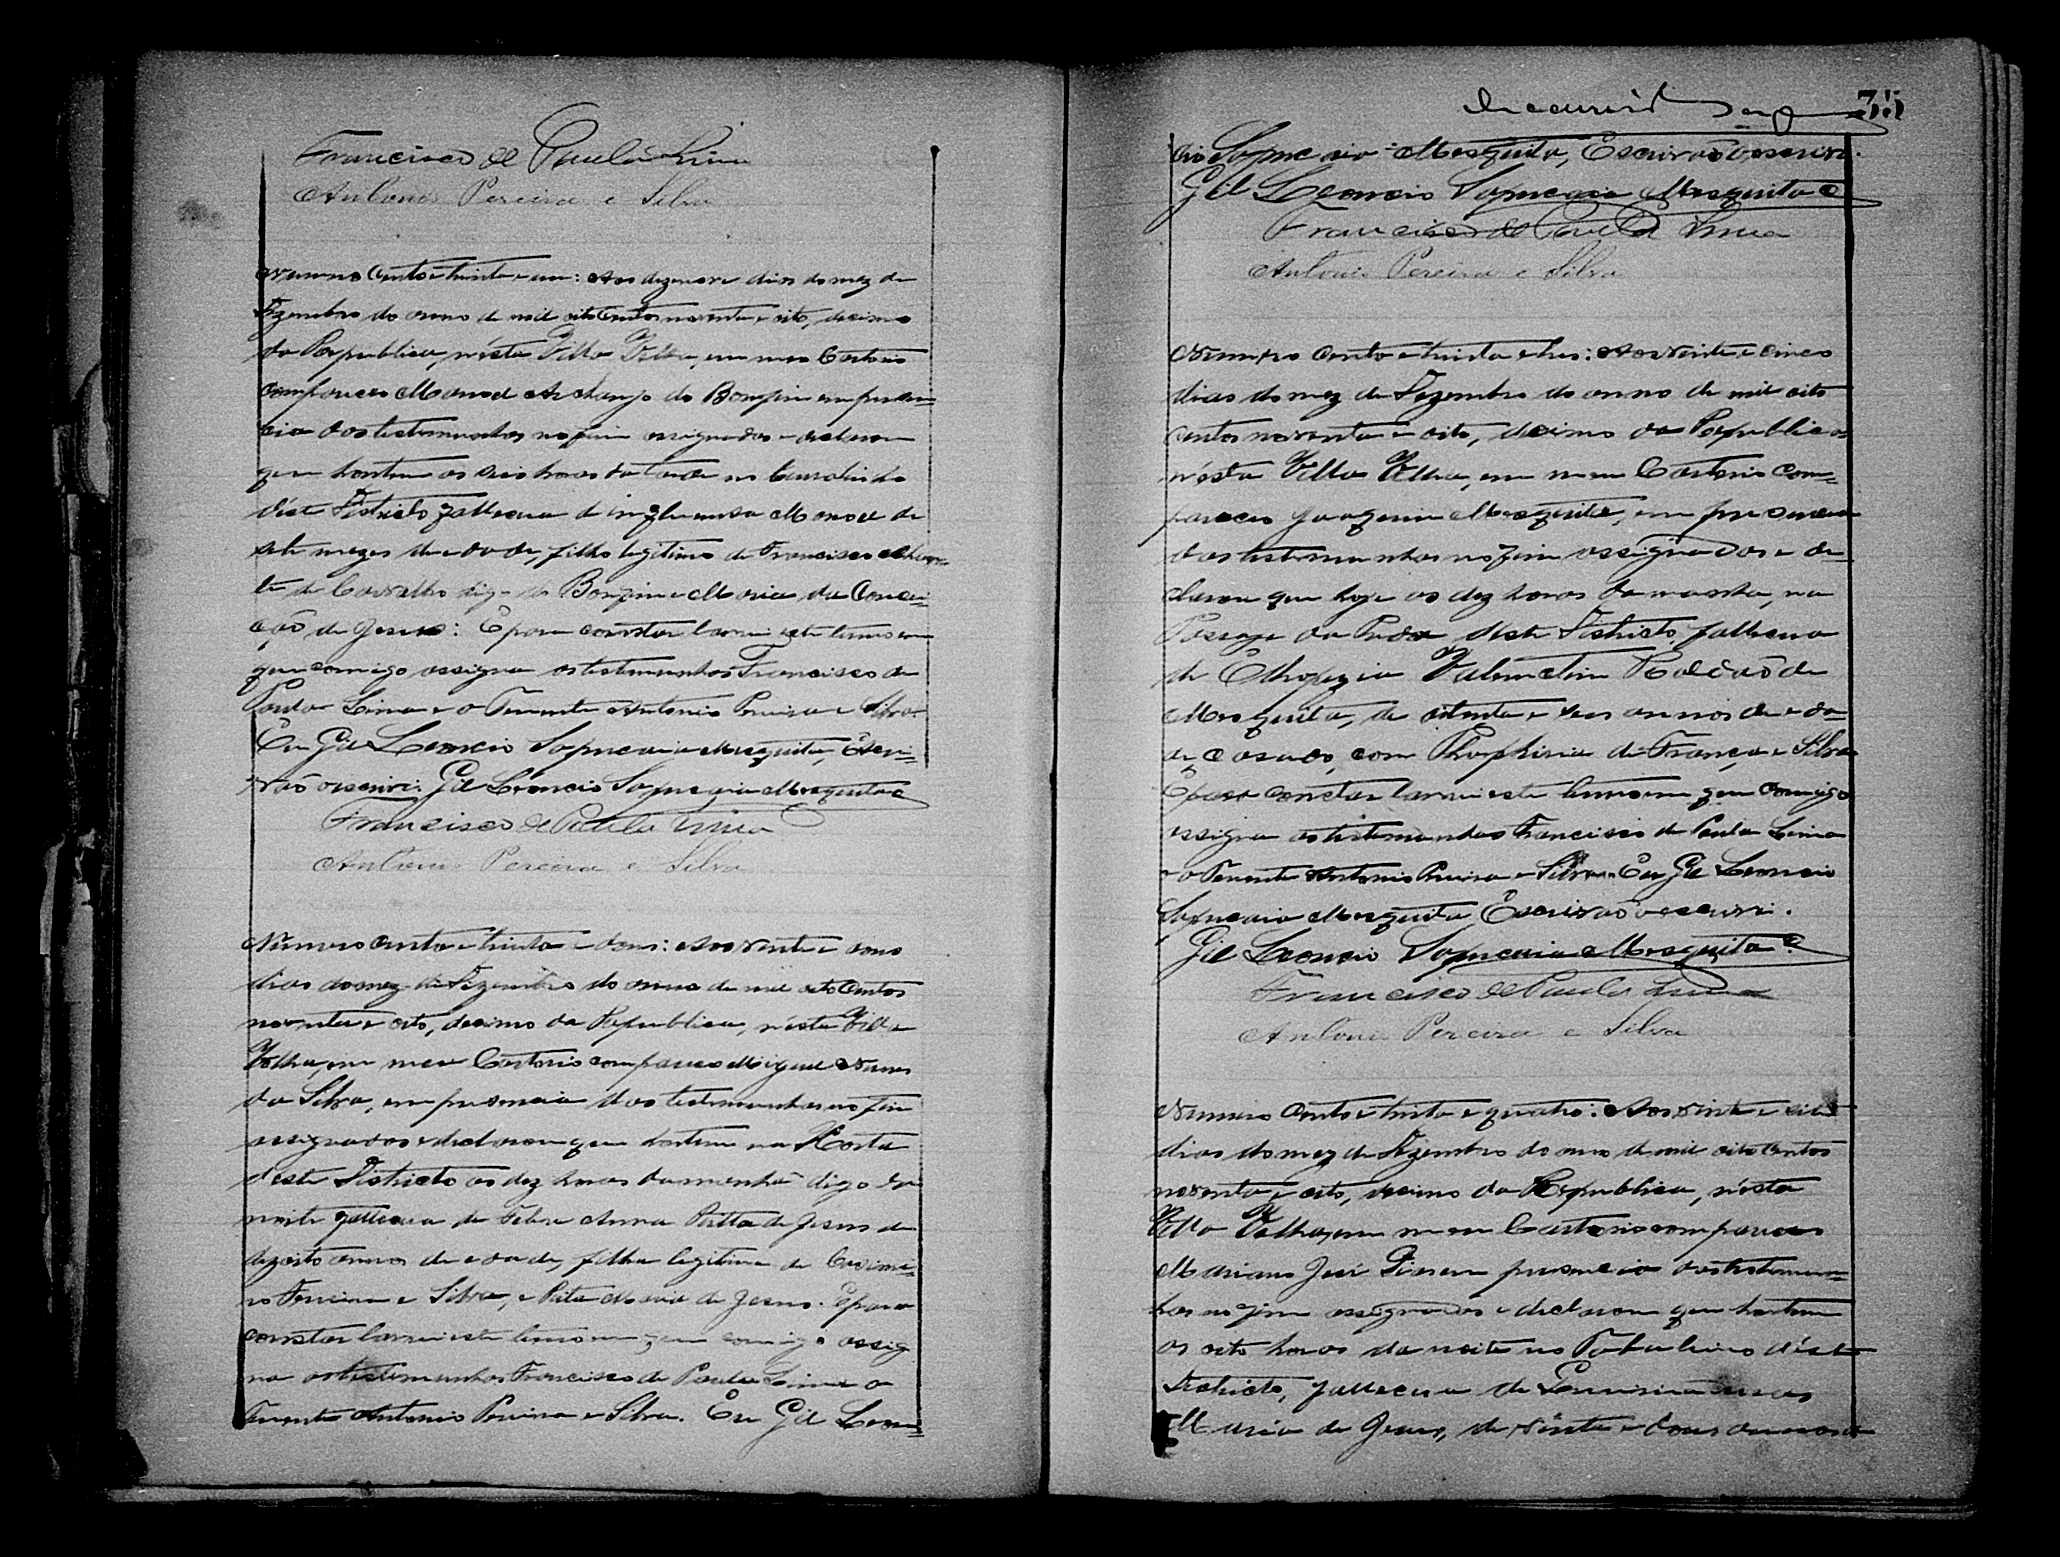 Francisco de Paula Lima
Antonio Pereira e Silva
Numero cento e trinta e um: Aos dezenove dias do mez de
Dezembro do anno de mil oito centos noventa e oito, decimo
da Republica, nésta Villa Velha, em meu Cartorio
compareceu Manoel Archanjo do Bomfim em presen=
cia das testemunhas no fim assignadas e declarou
que hontem as seis horas da tarde no
déste Districto falleceu de influensa Manoel de
sete mezes de edade, filho legitimo de Francisco
de Carvalho digo do Bomfim e Maria da Concei=
ção de Jesus: E para constar lavrei este termo em
que comigo assigna as testemunhas Francisco de
Paula Lima e o Tenente Antonio Pereira e Silva.
Eu Gil Leoncio Sapucaia Mesquita, Escri=
vão o escrivi. Gil Leoncio Sapucaia Mesquita
Francisco de Paula Lima
Antonio Pereira e Silva
Numero cento e trinta e dous: Aos vinte e dous
dias do mez de Dezembro do anno de mil oito centos
noventa e oito, decimo da Republica, nésta Villa
Velha, em meu Cartorio compareceu Miguel Nunes
da Silva, em presencia das testemunhas no fim
assignadas e declarou que hontem na Horta
deste Districto as dez horas da manhã digo da
noite falleceu de febre Anna Ritta de Jesus de
dezoito annos de edade, filha legitima de Casimi=
ro Ferreira e Silva, e Rita Maria de Jesus. E para
constar lavrei este termo em que comigo assig
na as testemunhas Francisco de Paula Lima e o
Tenente Antonio Pereira e Silva. Eu Gil Leon=
35
cio Sapucaia Mesquita, Escrivão o escrivi.
Gil Leoncio Sapucaia Mesquita
Francisco de Paula Lima
Antonio Pereira e Silva
Numero cento e trinta e tres: Aos vinte e cinco
dias do mez de Dezembro do anno de mil oito
centos noventa e oito, decimo da Republica
nésta Villa Velha, em meu Cartorio com=
pareceu Joaquim Mesquita, em presencia
das testemunhas no fim assignadas e de=
clarou que hoje as dez horas da manhã, na
Passage da Pedra deste Districto, falleceu
de Valentim Roldão de
Mesquita, de oitenta e seis annos de eda=
de, casado, com Porphiria de França e Silva
E para constar lavrei este termo em que comigo
assigna as testemunhas Francisco de Paula Lima
e o Tenente Antonio Pereira e Silva. Eu Gil Leoncio
Sapucaia Mesquita Escrivão o escrivi.
Gil Leoncio Sapucaia Mesquita
Francisco de Paula Lima
Antonio Pereira e Silva
Numero cento e trinta e quatro: Aos vinte e sete
dias do mez de Dezembro do anno de mil oito centos
noventa e oito, decimo da Republica, nésta
Villa Velha, em meu Cartorio compareceu
Mariano José em presencia das testemun=
has no fim assignadas e declarou que hontem
as oito horas da noite no Taboleiro déste
Districto, falleceu de
Maria de Jesus, de vinte e dous annos